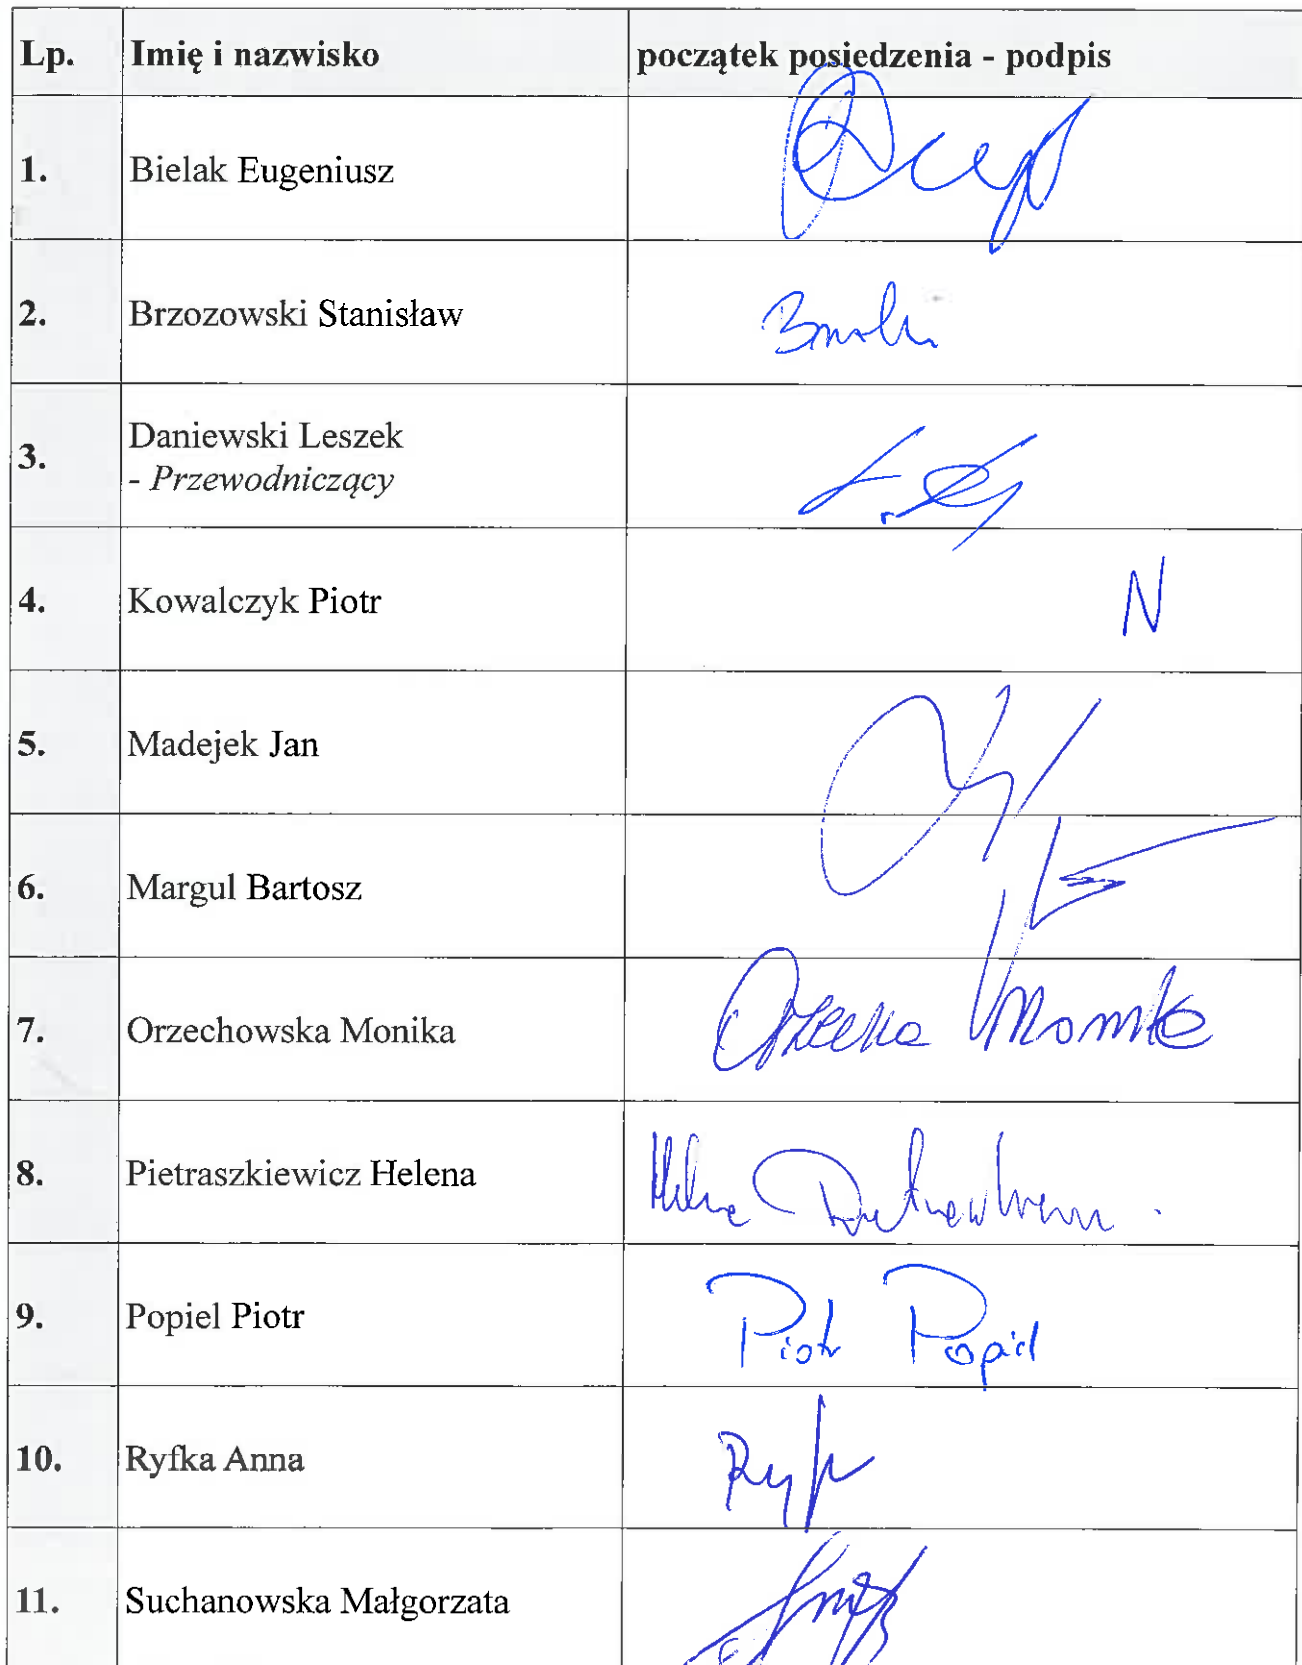 Lp. Imię i nazwisko początek posiedzenia - podpis
1. Bielak Eugeniusz
2. Brzozowski Stanisław
3. Daniewski Leszek
- Przewodniczący
4. Kowalczyk Piotr N
5. Madejek Jan
6. Margul Bartosz
7. Orzechowska Monika
8. Pietraszkiewicz Helena
9. Popiel Piotr Piotr Popiel
10. Ryfka Anna
11. Suchanowska Małgorzata